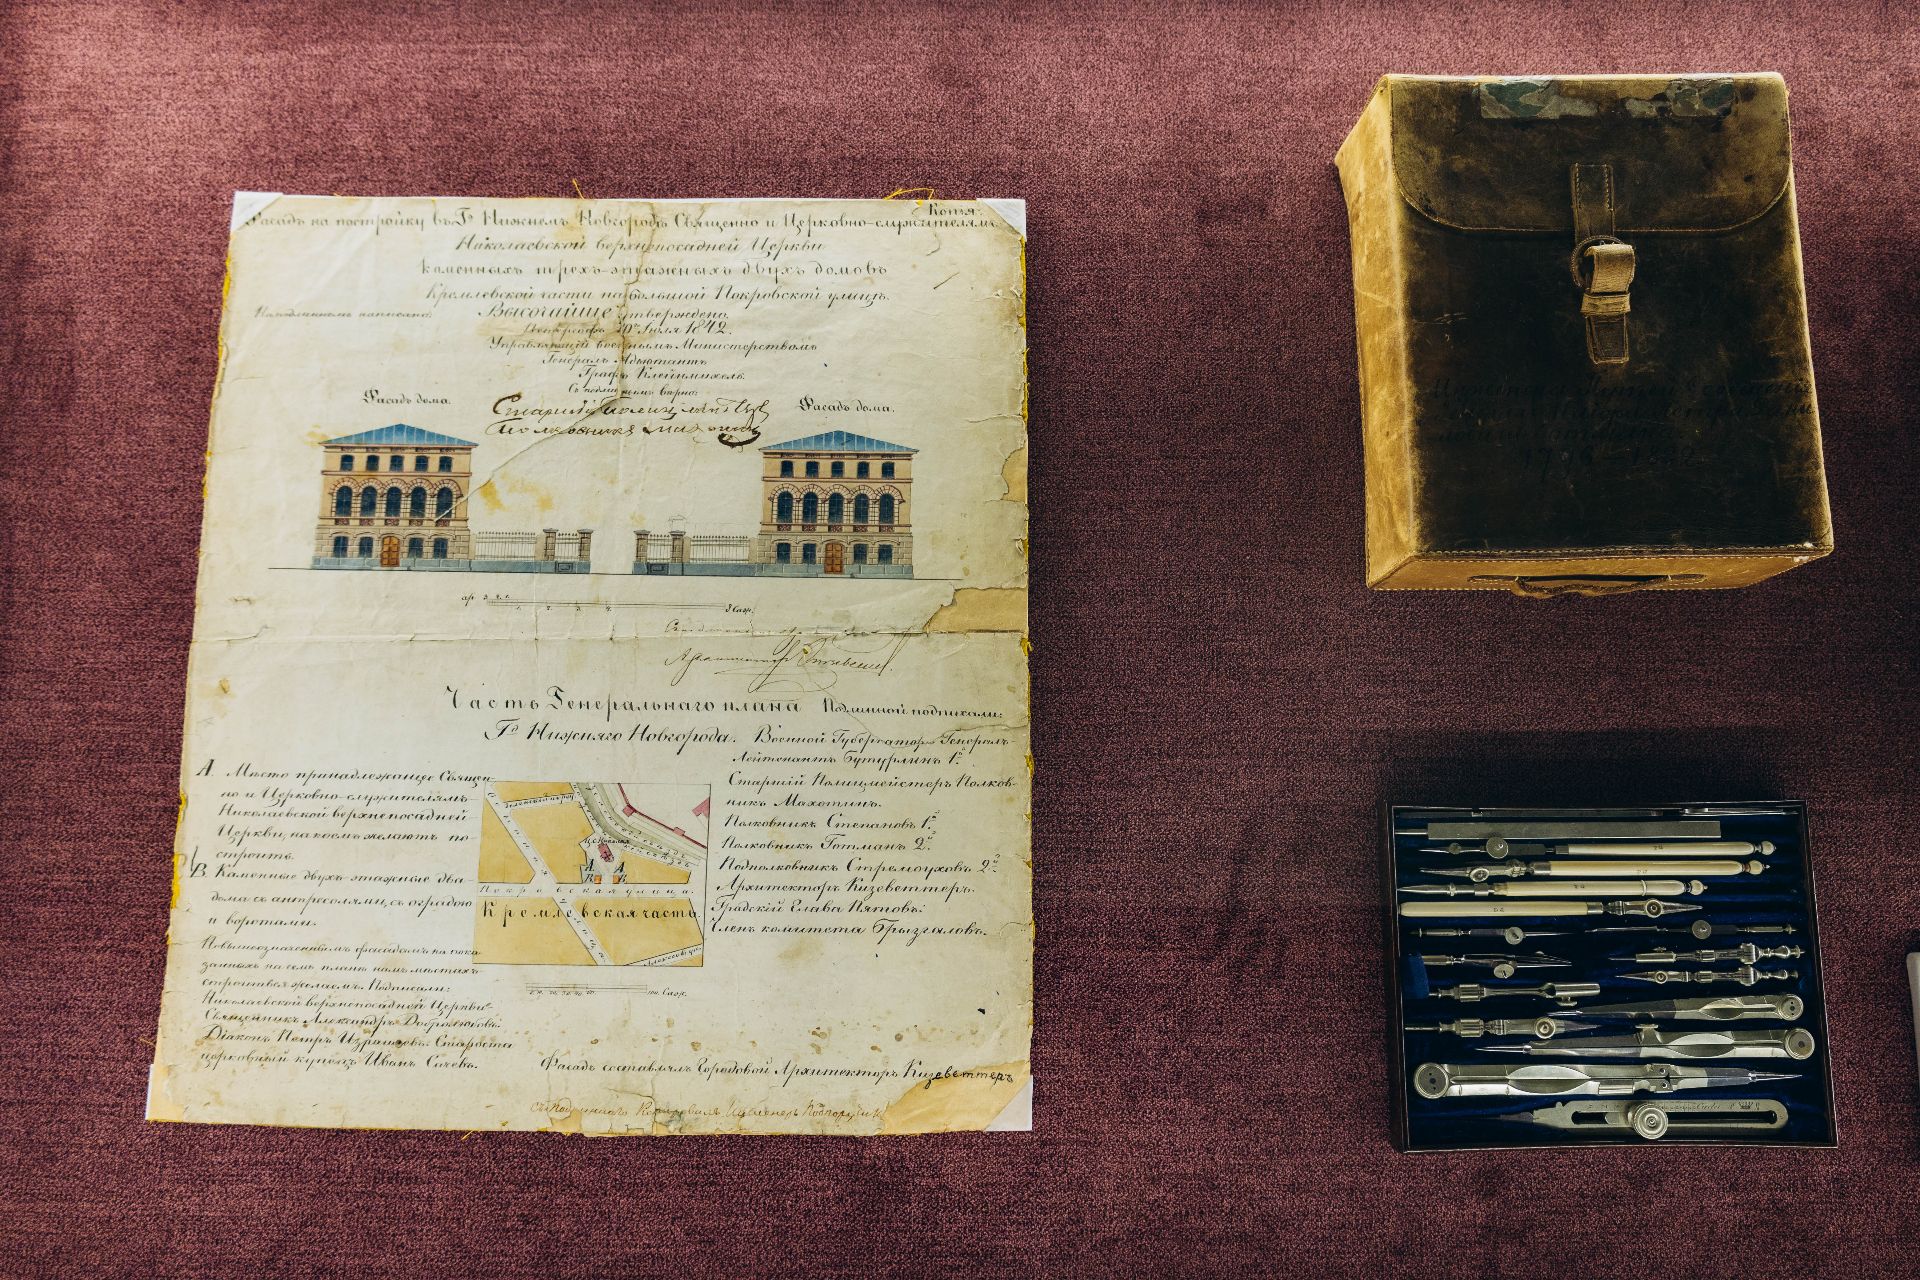 Копія.
Фасадъ на постройку въ Гᵈ Нижнемъ Новгородѣ Священно и Церковно-служителямъ
Николаевской верхнепосадней Церкви
каменныхъ трехъ-этажныхъ двухъ домовъ
Кремлевской части на большой Покровской улицѣ.
На подлинномъ написано:
Высочайше утверждено.
Петергофъ Іюля 1842.
Управляющій военнымъ Министерствомъ
Генералъ Адьютантъ
Графъ Клейнмихель.
Съ подлиннымъ вѣрно:
Фасадъ дома.
Старшій Полицмейстеръ
Фасадъ дома.
Полковникъ Махотинъ
ар 3 2. 1.
1. 2. 3. 4. 5 Саж.
Архитекторъ
Часть Генеральнаго плана
Гᵈ Нижняго Новгорода.
Подлинной подписали:
Военной Губернаторъ Генералъ-
Лейтенантъ Бутурлинъ 1ᵒⁱ
Старшій Полицмейстеръ Полков-
никъ Махотинъ.
Полковникъ Степановъ 1ⁱ
Полковникъ Готманъ 2ⁱ
Подполковникъ Стремоуховъ 2ⁱ
Архитекторъ Кизеветтеръ.
Градскій Глава Пятовъ.
Членъ комитета Брызгаловъ.
А. Мѣсто принадлежащее Священ-
но и Церковно-служителямъ
Николаевской верхнепосадней
Церкви, на коемъ желаютъ по-
строить.
В. Каменные двухъ-этажные два
дома съ антресолями, съ оградою
и воротами.
По вышеозначеннымъ фасадамъ на пока-
занныхъ на семъ планѣ намъ мѣстахъ
строиться желаемъ. Подписали:
Николаевской верхнепосадней Церкви
Священникъ Александръ Добролюбовъ.
Діаконъ Петръ Староста
церковный купецъ Иванъ
Ц. С. Николая
А А
В В
Покровская улица.
Кремлевская часть
улица
100. Саж.
Фасадъ составлялъ Городовой Архитекторъ Кизеветтеръ
Съ подлиннаго Копировалъ Инженеръ Подпоручикъ